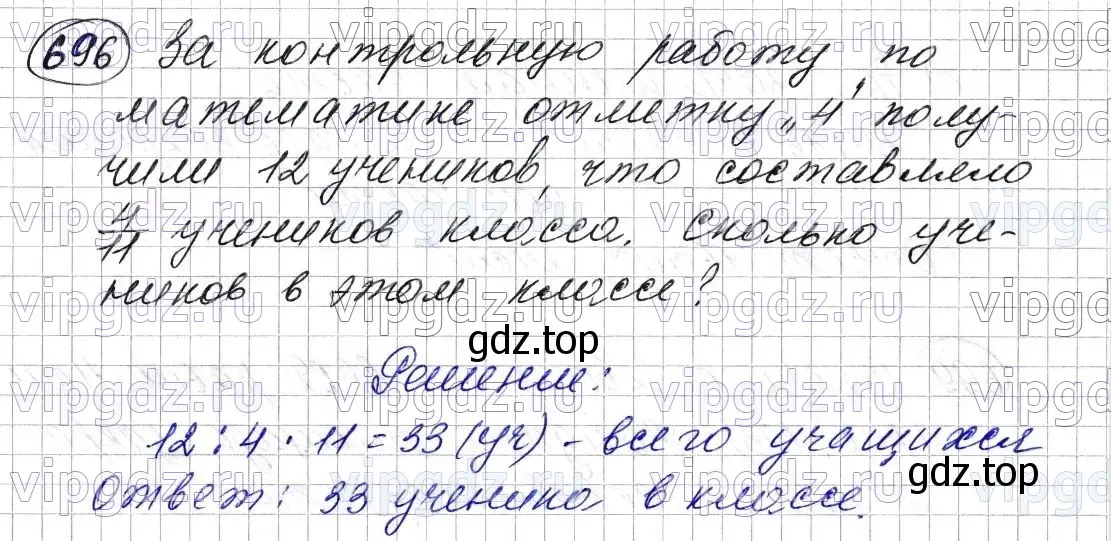 696 За контрольную работу по
математике отметку „4" полу-
чили 12 учеников, что составляло
4/11 учеников класса. Сколько уче-
ников в этом классе?
gdz.top
Решение:
12 : 4 · 11 = 33 (уч) - всего учащихся
Ответ: 33 ученика в классе.
gdz.top